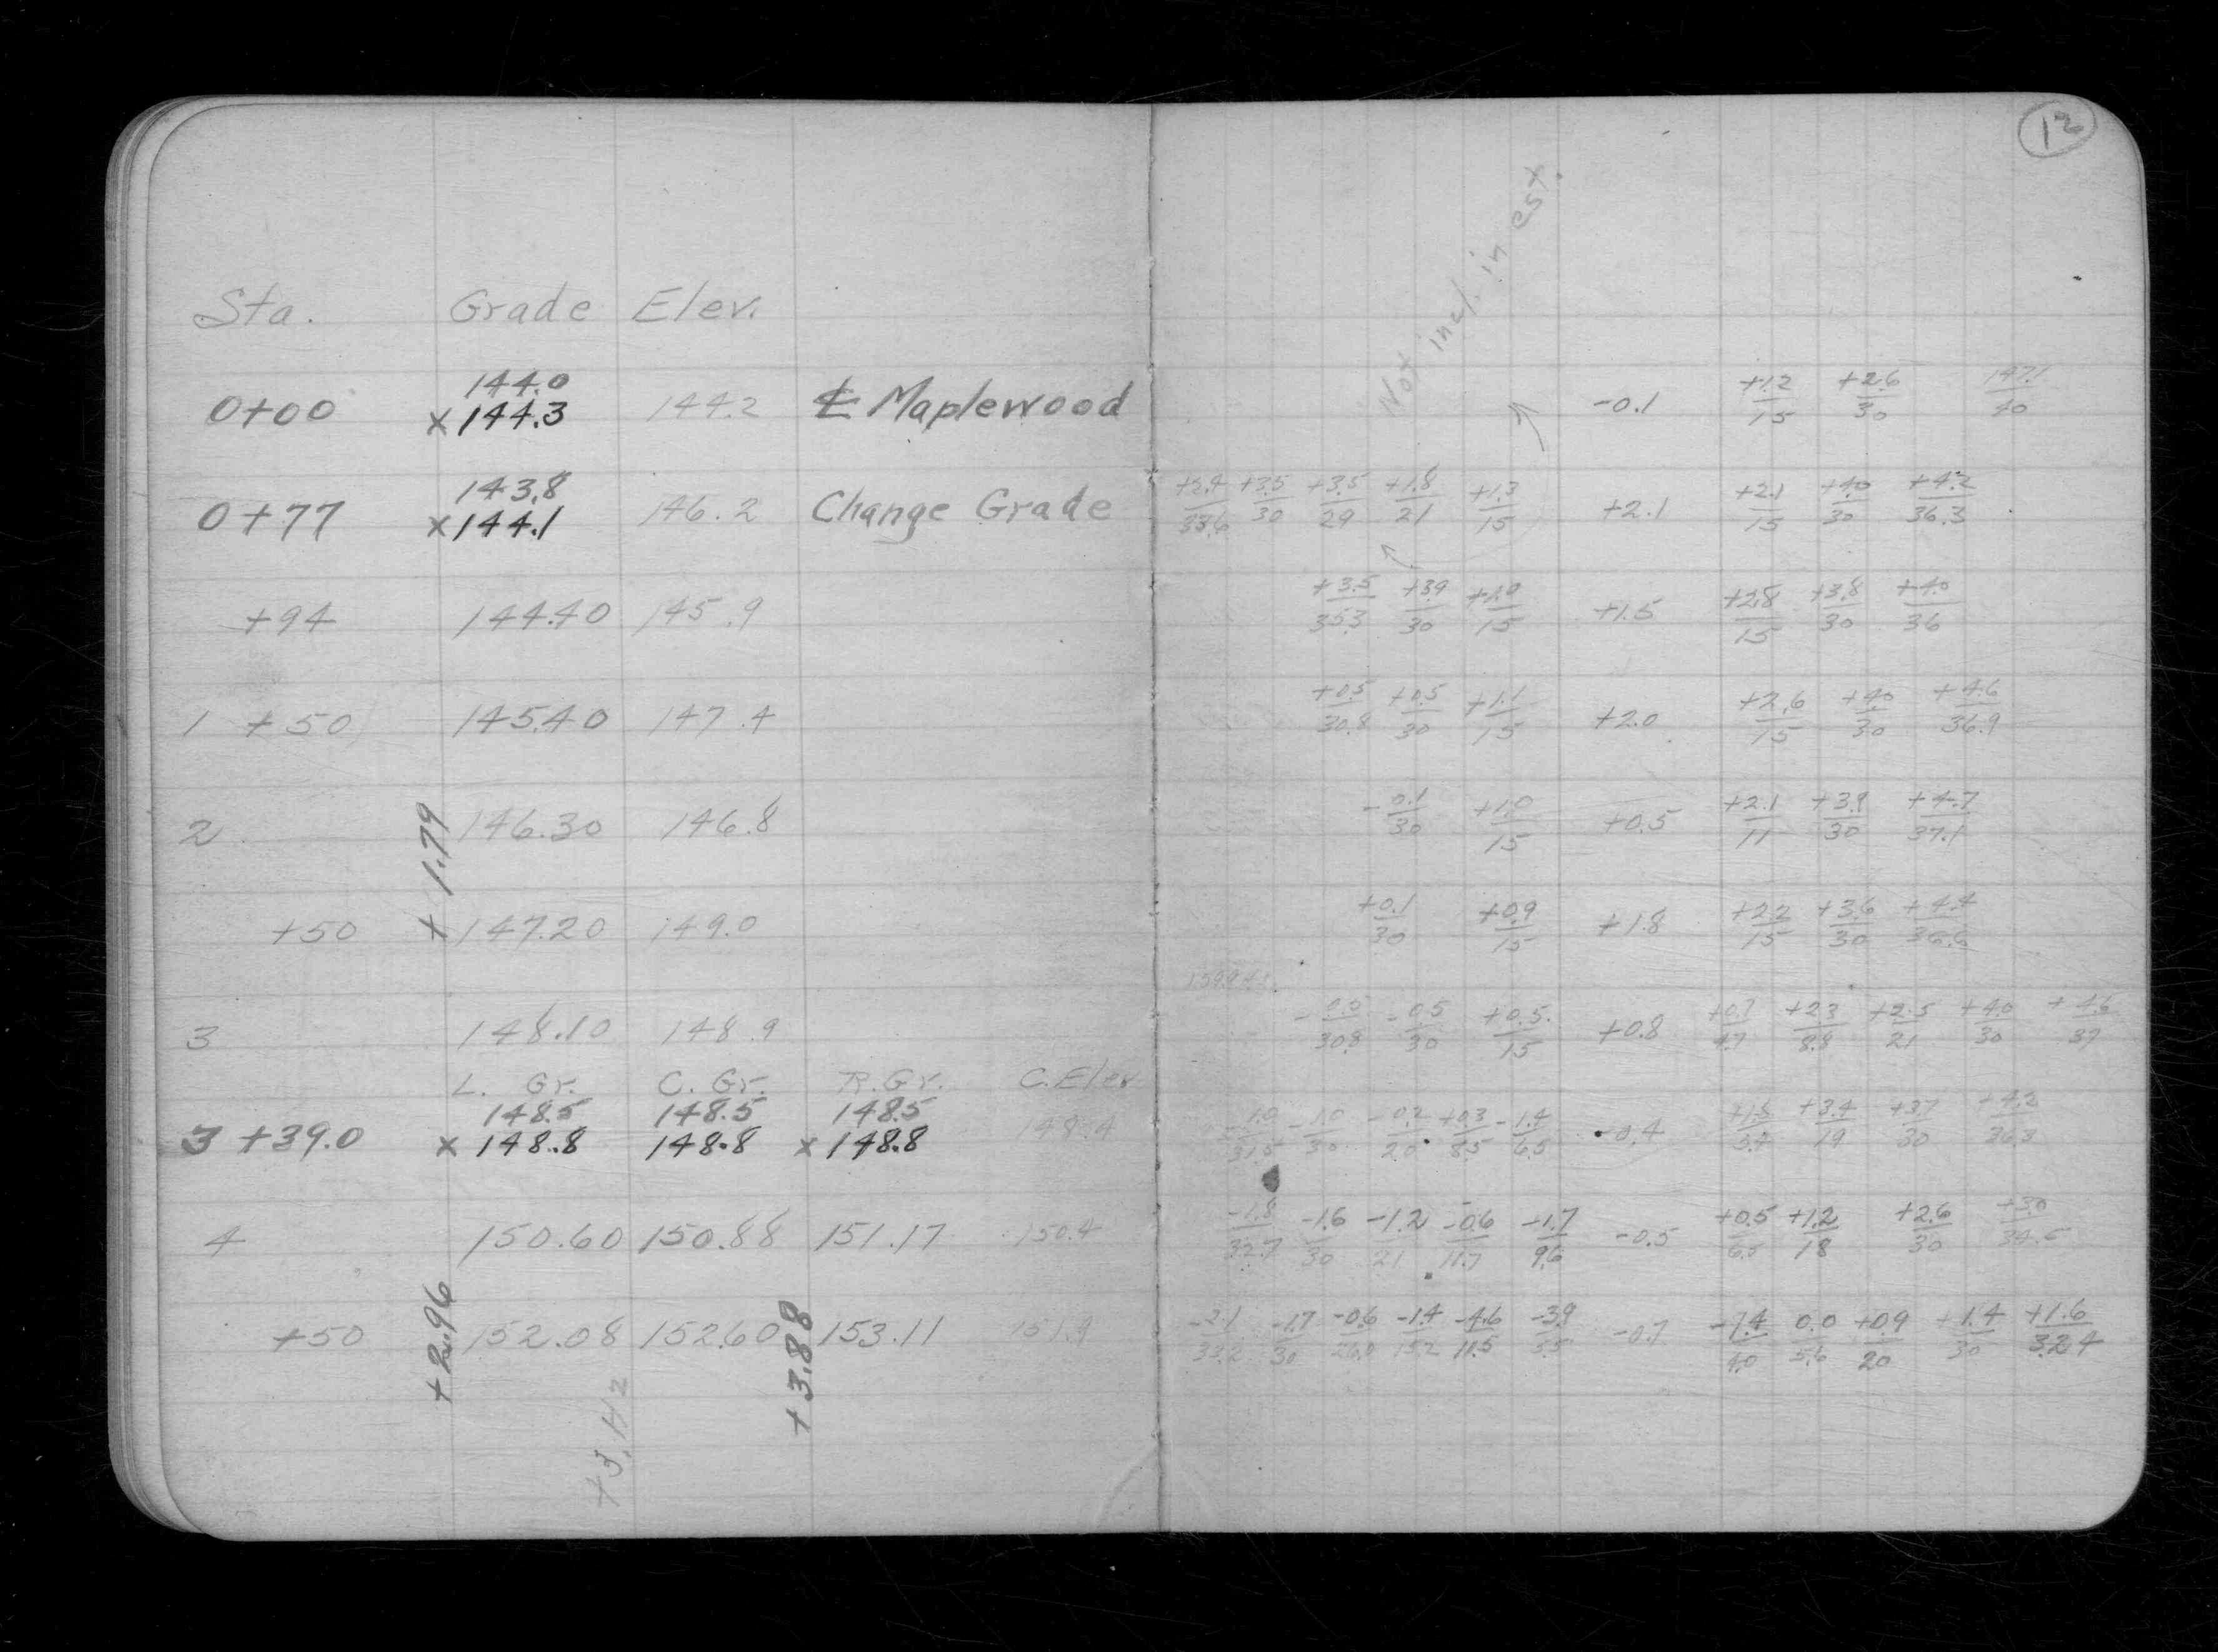 12
Not incl. in est.
Sta. Grade Elev.
144.0
0+00 x144.3 144.2 ℄ Maplewood -0.1 +1.2/15 +2.6/30 147.1/40
143.8
0+77 x144.1 146.2 Change Grade +2.4/33.6 +3.5/30 +3.5/29 +1.8/21 +1.3/15 +2.1 +2.1/15 +4.0/30 +4.2/36.3
+94 144.40 145.9 +3.5/35.3 +3.9/30 /15 +1.5 +2.8/15 +3.8/30 +4.0/36
1 +50 145.40 147.4 +0.5/30.8 +0.5/30 +1.1/15 +2.0 +2.6/15 +4.0/30 +4.6/36.9
2 146.30 146.8 -0.1/30 +1.0/15 +0.5 +2.1/11 +3.9/30 +4.7/37.1
+1.79
+50 147.20 149.0 +0.1/30 +0.9/15 +1.8 +2.2/15 +3.6/30 +4.4/36.6
3 148.10 148.9 -0.5/30.8 -0.5/30 +0.5/15 +0.8 +0.7/4.7 +2.3/8.8 +2.5/21 +4.0/30 +4.6/37
L. Gr. C. Gr. R. Gr. C. Elev
148.5 148.5 148.5
3 +39.0 x 148.8 148.8 x 148.8 148.4 -1.0/31.5 -1.0/30 -0.2/20 +0.3/8.5 -1.4/6.5 -0.4 +1.5/5.4 +3.4/19 +3.7/30 +4.2/36.3
4 150.60 150.88 151.17 150.4 -1.8/32.7 -1.6/30 -1.2/21 -0.6/11.7 -1.7/9.6 -0.5 +0.5/6.5 +1.2/18 +2.6/30 +3.0/34.5
+50 152.08 152.60 153.11 151.9 -2.1/33.2 -1.7/30 -0.6/26.0 -1.4/15.2 -4.6/11.5 -3.9/5.5 -0.7 -7.4/4.0 0.0/5.6 +0.9/20 +1.4/30 +1.6/32.4
+2.96
+3.88